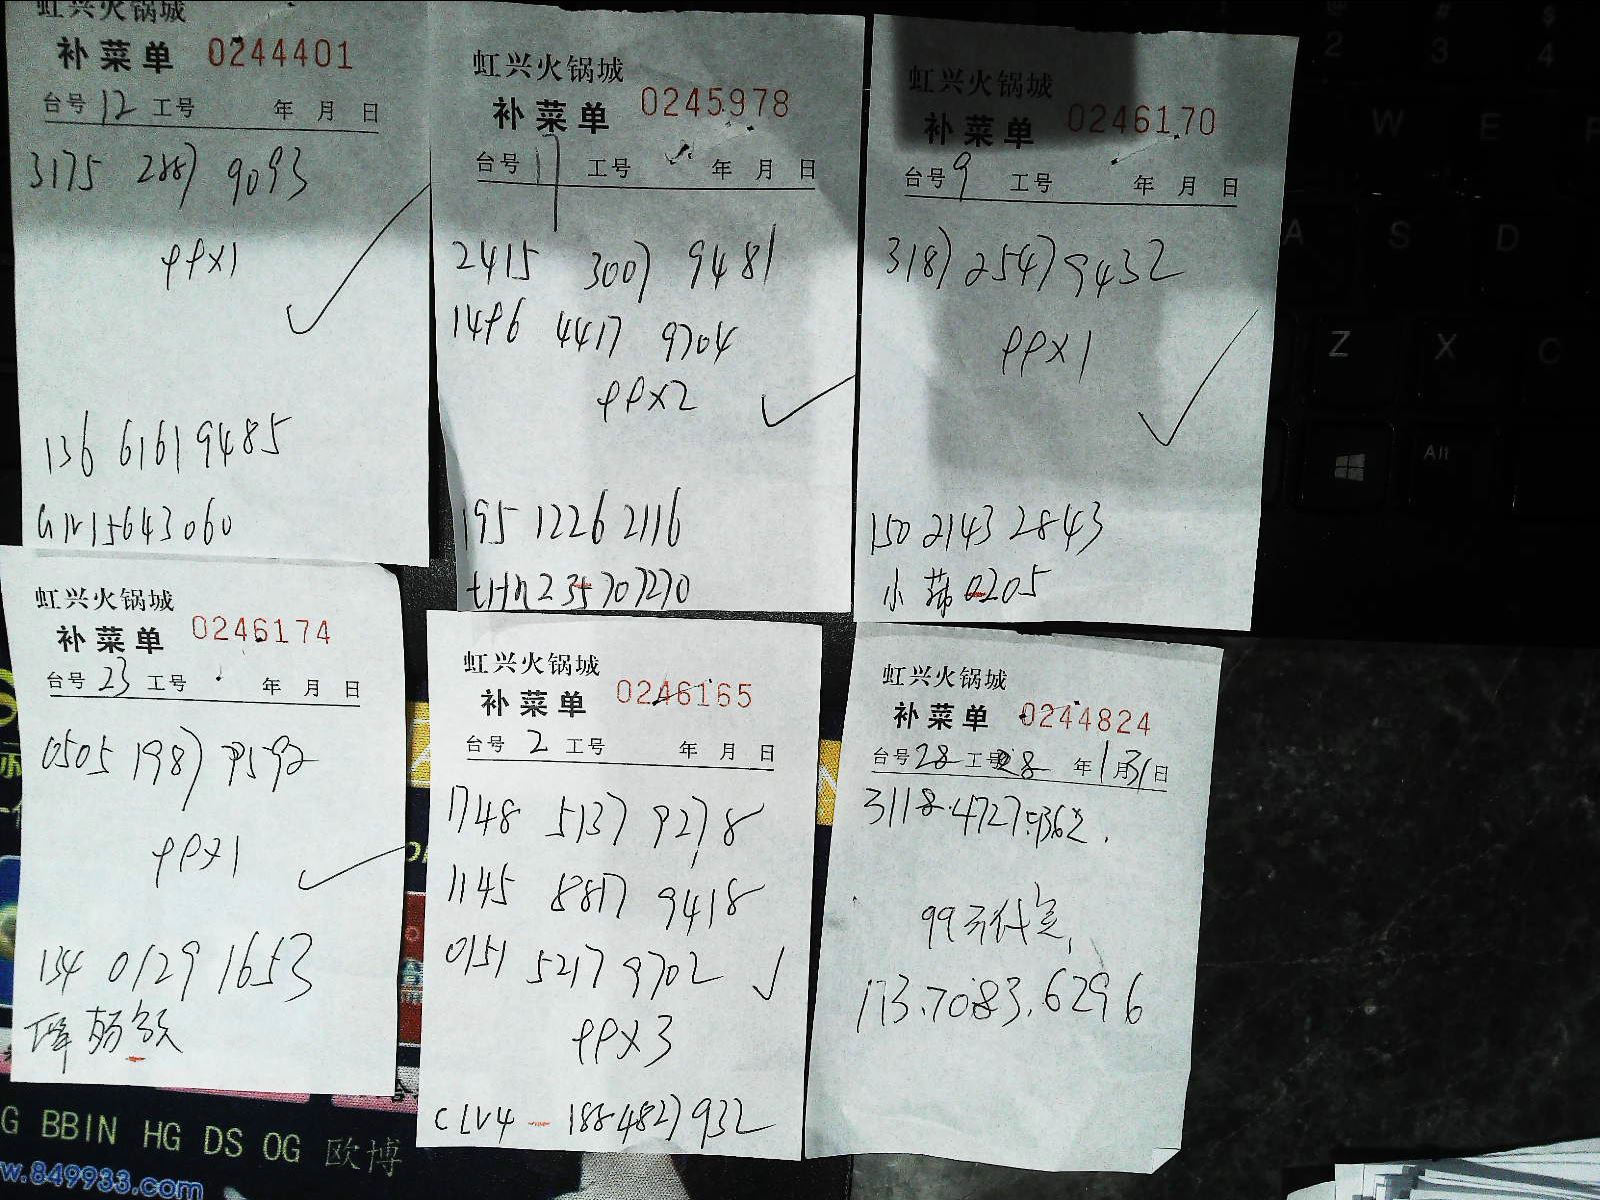 虹兴火锅城
补菜单 0244401
台号 12 工号 年 月 日
3175 2887 9093
PPX1
136 6161 9485
虹兴火锅城
补菜单 0245978
台号 17 工号 年 月 日
2415 3007 9481
4417 9704
PPX2
195 1226 2116
虹兴火锅城
补菜单 0246170
台号 9 工号 年 月 日
3187 2547 9432
PPX1
150 2143 2843
小 0205
虹兴火锅城
补菜单 0246174
台号 23 工号 年 月 日
0505 1987
PPX1
134 0129 1653
虹兴火锅城
补菜单 0246165
台号 2 工号 年 月 日
1748 5137 9278
1145 8817 9418
0151 5217 9702
PPX3
CLV4 - 188 4827 932
虹兴火锅城
补菜单 0244824
台号 28 工号 28 年 1 月 31 日
3118.4727
99元代金
173.7083.6296
G BBIN HG DS OG 欧博
w.849933.com
@ # $
2 3 4
W E
A S D
Z X C
Alt